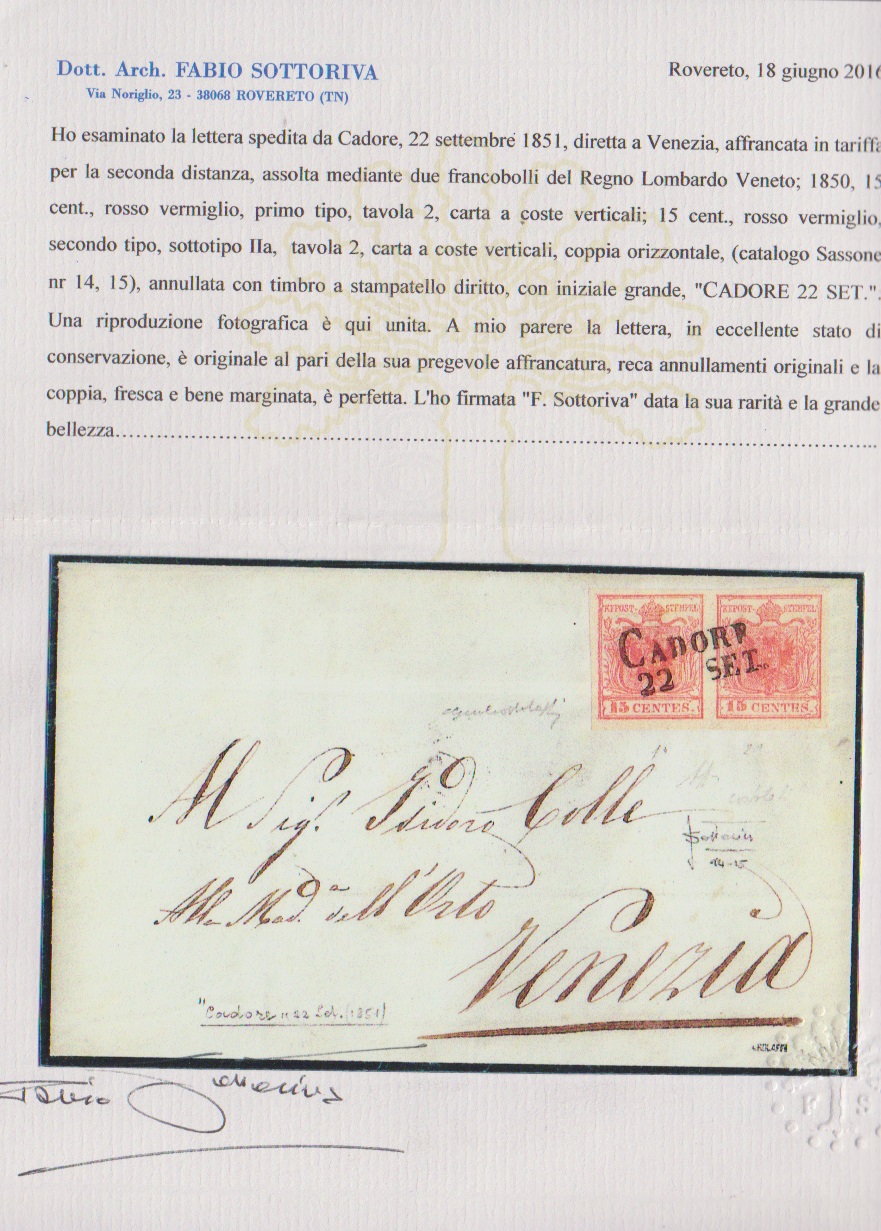 Dott. Arch. FABIO SOTTORIVA
Rovereto, 18 giugno 2016
Via Noriglio, 23 - 38068 ROVERETO (TN)
Ho esaminato la lettera spedita da Cadore, 22 settembre 1851, diretta a Venezia, affrancata in tariffa
per la seconda distanza, assolta mediante due francobolli del Regno Lombardo Veneto; 1850, 15
cent., rosso vermiglio, primo tipo, tavola 2, carta a coste verticali; 15 cent., rosso vermiglio,
secondo tipo, sottotipo IIa, tavola 2, carta a coste verticali, coppia orizzontale, (catalogo Sassone
nr 14, 15), annullata con timbro a stampatello diritto, con iniziale grande, "CADORE 22 SET.".
Una riproduzione fotografica è qui unita. A mio parere la lettera, in eccellente stato di
conservazione, è originale al pari della sua pregevole affrancatura, reca annullamenti originali e la
coppia, fresca e bene marginata, è perfetta. L'ho firmata "F. Sottoriva" data la sua rarità e la grande
bellezza......................................................................................................
KKPOST-STEMPEL KKPOST-STEMPEL
CADORE
22 SET.
15 CENTES. 15 CENTES.
Al Sig.r Isidoro Colle
Sottoriva
14-15
Alla Mad.a dell'Orto
Venezia
"Cadore" 22 Set. (1851)
Fabio Sottoriva
F S